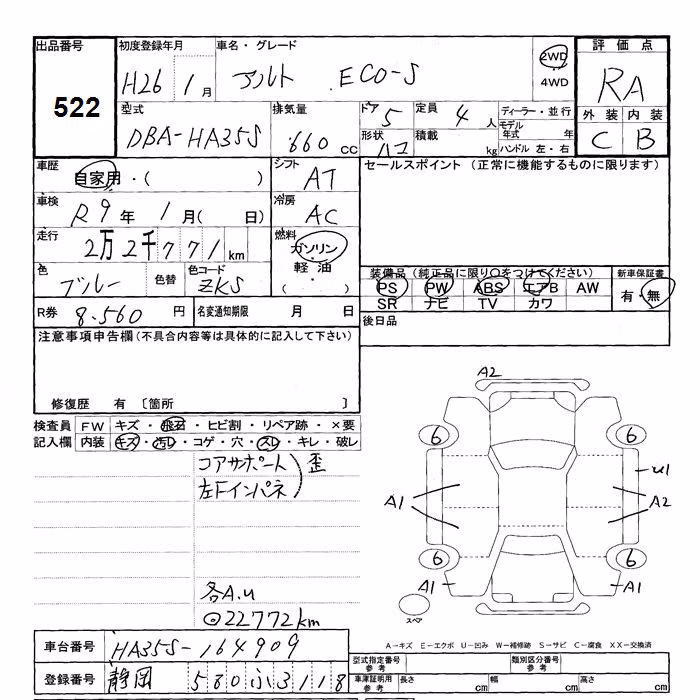 出品番号 初度登録年月 車名・グレード 2WD 4WD 評価点
522 H26年 1月 アルト ECO-S RA
外装 内装
C B
型式 排気量 ドア 定員 ディーラー・並行
DBA-HA35S 660cc 5 4人 モデル年式 年
形状 積載 ハンドル 左・右
ハコ kg
車歴 シフト セールスポイント (正常に機能するものに限ります)
自家用・( ) AT
車検 冷房
R9年 1月( 日) AC
走行 燃料
2万2千771km ガソリン
軽油
( )
色 色替 色コード
ブルー ZKS
装備品 (純正品に限り○をつけてください) 新車保証書
PS PW ABS エアB AW 有・無
SR ナビ TV カワ
R券 8.560円 名変通知期限 月 日 後日品
注意事項申告欄(不具合内容等は具体的に記入して下さい)
修復歴 有 〔箇所 〕
検査員 FW キズ・飛石・ヒビ割・リペア跡・×要
記入欄 内装 キズ・汚レ・コゲ・穴・スレ・キレ・破レ
コアサポート
左Fインパネ 歪
A2
6 6
U1
A1 A2
6 6
A1 A1
スペア
各A.U
⊙22772km
A-キズ E-エクボ U-凹み W-補修跡 S-サビ C-腐食 XX-交換済
車台番号 HA35S-164909
型式指定番号 参考 類別区分番号 参考
登録番号 静岡 580 ふ 3118
車庫証明用 参考 長さ cm 幅 cm 高さ cm